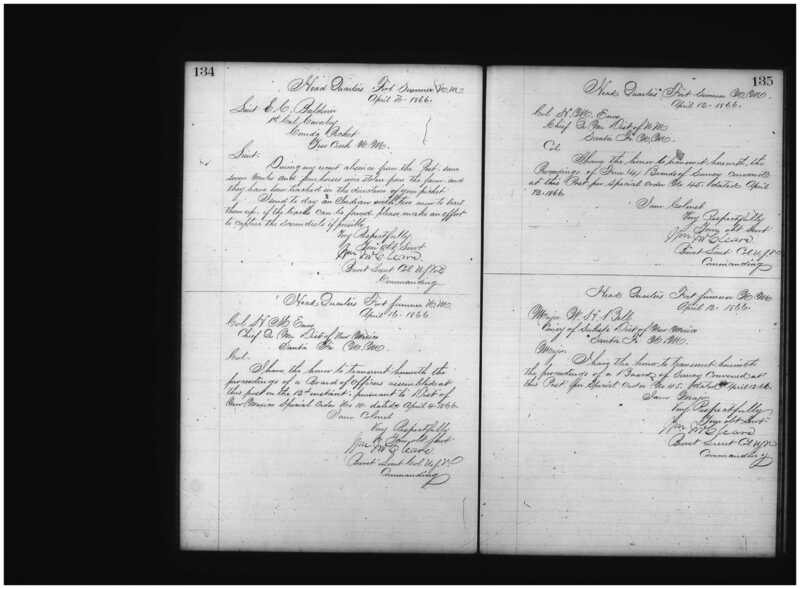 134
Head Quarters Fort Sumner N.M.
April 1866.
Lieut E. C. Baldwin
1st Cal. Cavalry
Comdg Picket
Creek N.M.
Lieut.
During my recent absence from the Post some
seven mules and four horses were stolen from the farm and
they have been tracked in the direction of your picket
I send to day an Indian with two men to trail
them up. if the tracks can be found please make an effort
to capture the scoundrels if possible
Very Respectfully
Your obt Servt
Wm McCleave
Bvrt Lieut Col U.S.V.
Commanding
Head Quarters Fort Sumner N.M.
April 16 - 1866
Col. M. Enos
Chief Q. Mr. Dist of New Mexico
Santa Fe N.M.
Col.
I have the honor to transmit herewith the
proceedings of a Board of Officers assembled at
this post on the 12th instant. pursuant to Dist of
New Mexico Special Order No 10 dated April 4. 1866
I am Colonel
Very Respectfully
Your obt Servt
Wm McCleave
Bvrt Lieut Col U.S.V.
Commanding
135
Head Quarters Fort Sumner N.M.
April 12 - 1866.
Col. M. Enos
Chief Q. Mr Dist of N.M.
Santa Fe N.M.
Col.
I have the honor to transmit herewith the
Proceedings of Four (4) Boards of Survey convened
at this Post per Special Order No 45. dated April
12. 1866
I am Colonel
Very Respectfully
Your obt Servt
Wm McCleave
Bvrt Lieut Col U.S.V.
Commanding
Head Quarters Fort Sumner N.M.
April 12 - 1866
Major W. H. Bell
of Subsis Dist of New Mexico
Santa Fe N.M.
Major.
I have the honor to transmit herewith
the proceedings of a Board of Survey Convened at
this Post per Special Order No 45. dated April 12. 66.
I am Major
Very Respectfully
Your obt Servt
Wm McCleave
Bvrt Lieut Col U.S.V.
Commanding